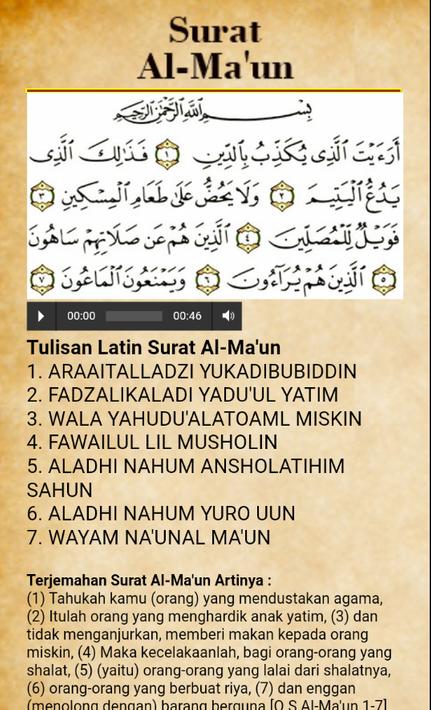 Surat
Al-Ma'un
بِسْمِ اللَّهِ الرَّحْمَٰنِ الرَّحِيمِ
أَرَءَيْتَ الَّذِى يُكَذِّبُ بِالدِّينِ ١ فَذَٰلِكَ الَّذِى
يَدُعُّ الْيَتِيمَ ٢ وَلَا يَحُضُّ عَلَىٰ طَعَامِ الْمِسْكِينِ ٣
فَوَيْلٌ لِّلْمُصَلِّينَ ٤ الَّذِينَ هُمْ عَن صَلَاتِهِمْ سَاهُونَ
٥ الَّذِينَ هُمْ يُرَآءُونَ ٦ وَيَمْنَعُونَ الْمَاعُونَ ٧
00:00 00:46
Tulisan Latin Surat Al-Ma'un
1. ARAAITALLADZI YUKADIBUBIDDIN
2. FADZALIKALADI YADU'UL YATIM
3. WALA YAHUDU'ALATOAML MISKIN
4. FAWAILUL LIL MUSHOLIN
5. ALADHI NAHUM ANSHOLATIHIM
SAHUN
6. ALADHI NAHUM YURO UUN
7. WAYAM NA'UNAL MA'UN
Terjemahan Surat Al-Ma'un Artinya :
(1) Tahukah kamu (orang) yang mendustakan agama,
(2) Itulah orang yang menghardik anak yatim, (3) dan
tidak menganjurkan, memberi makan kepada orang
miskin, (4) Maka kecelakaanlah, bagi orang-orang yang
shalat, (5) (yaitu) orang-orang yang lalai dari shalatnya,
(6) orang-orang yang berbuat riya, (7) dan enggan
(menolong dengan) barang berguna [Q.S Al-Ma'un 1-7]